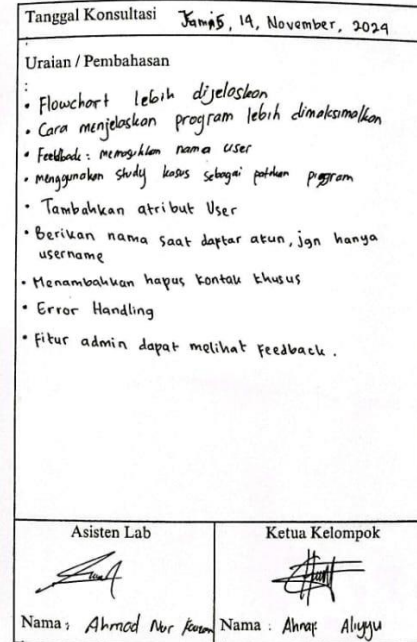 Tanggal Konsultasi Jamis, 14, November, 2024
Uraian / Pembahasan
:
• Flowchart lebih dijelaskan
• Cara menjelaskan program lebih dimaksimalkan
• Feedback : memasukkan nama user
• menggunakan study kasus sebagai patokan program
• Tambahkan atribut User
• Berikan nama saat daftar akun, jgn hanya
username
• Menambahkan hapus kontak khusus
• Error Handling
• Fitur admin dapat melihat Feedback.
Asisten Lab Ketua Kelompok
Nama : Ahmad Nur Nama : Ahnaf Aliyyu